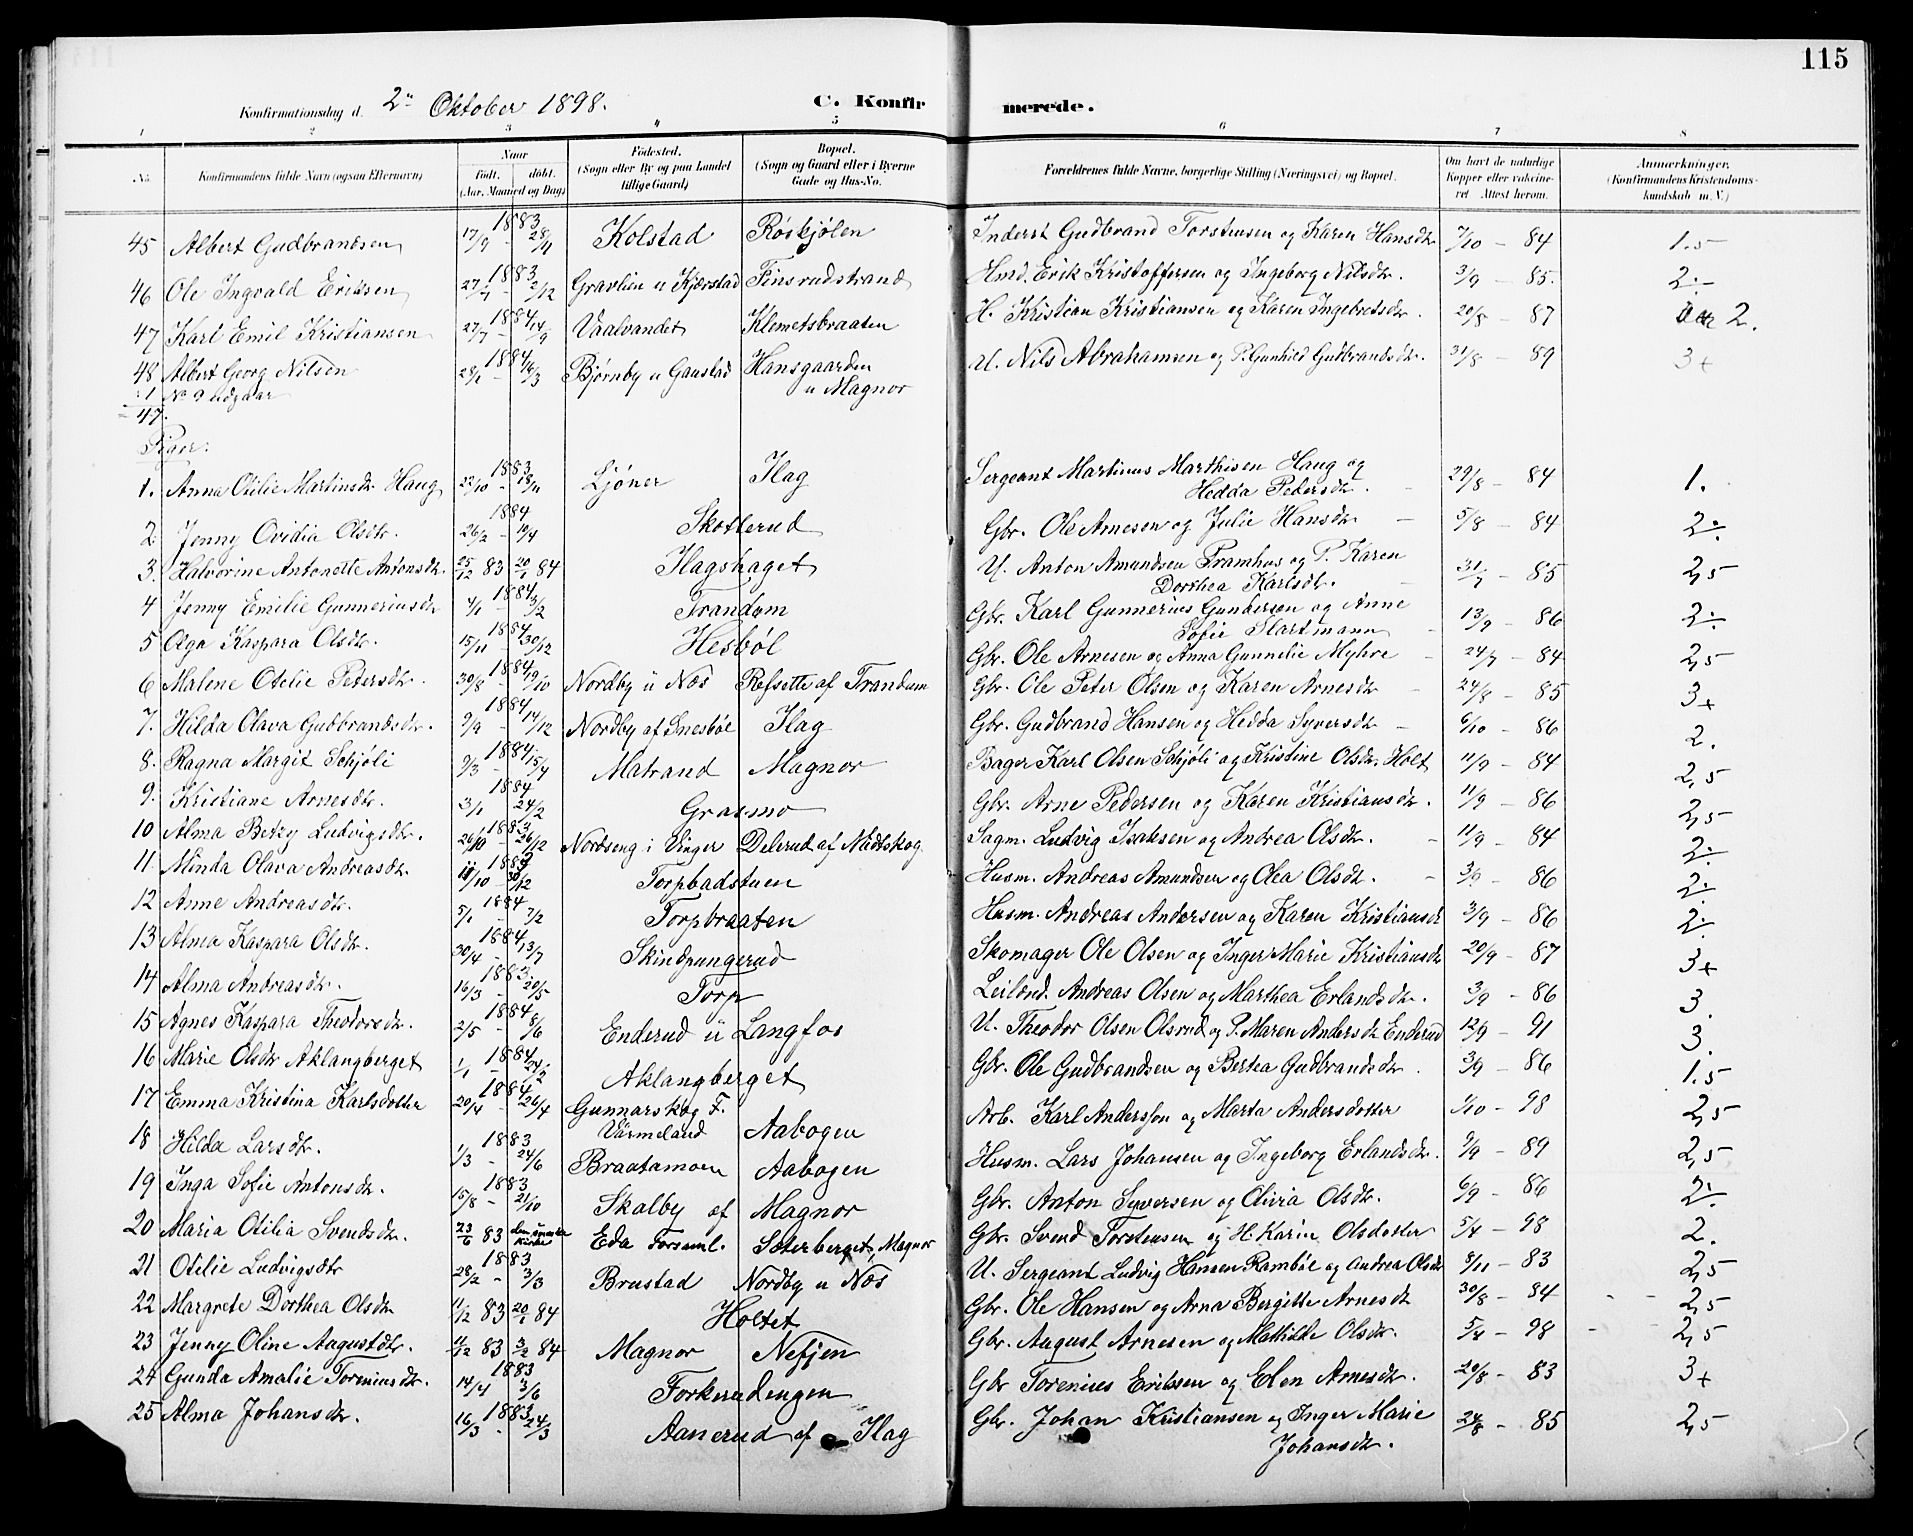 115
Konfirmationsdag d. 2den Oktober 1898. C. Konfirmerede.
1 2 3 4 5 6 7 8
No. Konfirmandens fulde Navn (ogsaa Efternavn) Naar født. døbt. (Aar, Maaned og Dag) Fødested. (Sogn eller By og paa Landet tillige Gaard) Bopæl. (Sogn og Gaard eller i Byerne Gade og Hus-No. Forældrenes fulde Navne, borgerlige Stilling (Næringsvei) og Bopæl. Om havt de naturlige Kopper eller vaccineret. Attest herom. Anmærkninger. (Konfirmandens Kristendomskundskab m. V.)
45 Albert Gudbrandsen 1883 17/9 - 28/11 Kolstad Røskjølen Inderst Gudbrand Torstensen og Karen Hansdtr 7/10 - 84 1.5
46 Ole Ingvald Eriksen 1883 27/7 - 2/12 Gravlien u Kjærstad Finsrudstrand Hmd. Erik Kristoffersen og Ingeborg Nilsdtr. 3/9 - 85. 2÷
47 Karl Emil Kristiansen 1884 27/7 - 14/9 Vaalvandet Klemetsbraaten H. Kristian Kristiansen og Karen Ingebretsdtr. 20/8 - 87 2.
48 Albert Georg Nilsen 1884 28/1 - 16/3 Bjørnby u Gaustad Hansgaarden u Magnor U. Nils Abrahamsen og P. Gunhild Gudbrandsdtr. 31/8 - 89 3+
÷1 No 9 udgaar
=47.
Piger:
1. Anna Otilie Martinsdtr Haug 1883 22/10 - 18/11 Ljøner Ilag Sergeant Martinus Marthisen Haug og Hedda Pedersdtr. 29/8 - 84 1.
2 Jenny Ovidia Olsdtr. 1884 26/2 - 14/4 Skotterud Gbr. Ole Arnesen og Julie Hansdtr 5/8 - 84 2÷
3. Halvorine Antonette Antonsdtr. 25/12 83 20/1 84 Ilagshaget U. Anton Amundsen Framhus og P. Karen Dorthea Karlsdtr. 31/7 - 85 2,5
4 Jenny Emilie Gunneriusdtr 1884 4/1 - 3/2 Trandom Gbr. Karl Gunnerius Gundersen og Anne Sofie Hartmann 13/9 - 86 2÷
5 Olga Kaspara Olsdtr. 1884 15/11 - 30/12 Hesbøl Gbr. Ole Arnesen og Anna Gunnelie Myhre 24/7 - 84 2,5
6 Malene Otelie Petersdtr. 1884 30/8 - 19/10 Nordby u Næs Refsette af Trandum Gbr. Ole Peter Olsen og Karen Arnesdtr 24/8 - 85 3+
7. Hilda Olava Gudbrandsdtr. 1884 9/9 - 14/12 Nordby af Snesbøl Ilag Gbr. Gudbrand Hansen og Hedda Syversdtr 6/10 - 86 2.
8. Ragna Margit Schjøli 1884 9/3 - 15/4 Matrand Magnor Bager Karl Olsen Schjøli og Kristine Olsdtr. Holt 11/9 - 84 2,5
9. Kristiane Arnesdtr. 1884 3/1 24/2 Grasmo Gbr. Arne Pedersen og Karen Kristiansdtr. 11/9 - 86 2,5
10 Alma Betzy Ludvigsdtr. 1883 26/10 - 26/12 Nordseng i Vinger Delerud af Nadtskog Sagm. Ludvig Isaksen og Andrea Olsdtr. 11/9 - 84 2÷
11 Minda Olava Andreasdtr. 1883 11/10 - 30/12 Torpbadstuen Husm. Andreas Amundsen og Olea Olsdtr. 3/9 - 86 2÷
12 Anne Andreasdtr. 1884 5/1 - 7/2 Torpbraaten Husm. Andreas Andersen og Karen Kristiansdtr 3/9 - 86 2÷
13 Alma Kaspara Olsdtr. 1884 30/4 - 13/7 Skindpungerud Skomager Ole Olsen og Inger Marie Kristiansdtr 20/9 - 87 3+
14 Alma Andreasdtr. 1883 16/3 - 20/5 Torp Leilænd. Andreas Olsen og Marthea Erlandsdtr. 3/9 - 86 3.
15 Agnes Kaspara Theodorsdtr. 1884 2/5 - 8/6 Enderud u Langfos U. Theodor Olsen Olsrud og P. Maren Andersdtr Enderud 12/9 - 91 3.
16 Marie Olsdtr Aklangberget 1884 1/1 - 24/2 Aklangberget Gbr. Ole Gudbrandsen og Berthea Gudbrandsdtr. 3/9 - 86 1.5
17 Emma Kristina Karlsdotter 1884 20/4 - 26/4 Gunnarskog F. Värmeland Aabogen Arb. Karl Andersson og Marta Andersdotter 1/10 - 98 2,5
18 Hilda Larsdtr. 1883 1/3 - 24/6 Braatamoen Aabogen Husm. Lars Johansen og Ingeborg Erlandsdtr. 9/9 - 89 2,5
19 Inga Sofie Antonsdtr. 1883 15/8 - 21/10 Skalby af Magnor Gbr. Anton Syversen og Olivia Olsdtr. 6/9 - 86 2÷
20 Maria Otilia Svendsdtr. 23/6 83 Kirke Eda Forsaml. Säterberget, Magnor Gbr. Svend Torstensen og H. Karin Olsdotter 5/4 - 98 2.
21 Otilie Ludvigsdtr 1883 28/2 - 3/3 Brustad Nordby u Næs U. Sergeant Ludvig Hansen Rambøl og Andrea Olsdtr 8/11 - 83 2,5
22 Margrete Dorthea Olsdtr 11/12 83 20/1 84 Holtet Gbr. Ole Hansen og Arna Bergitte Arnesdtr 30/8 - 84 2,5
23 Jenny Oline Augustdtr. 11/12 83 3/2 84 Magnor Nefjen Gbr. August Arnesen og Mathilde Olsdtr. 5/4 - 98 2,5
24 Gunda Amalie Toreniusdtr. 1883 14/4 3/6 Forkerudengen Gbr Torenius Eriksen og Elen Arnesdtr. 20/8 - 83 3+
25 Alma Johansdtr. 1883 16/3 - 24/3 Aanerud af Ilag Gbr. Johan Kristiansen og Inger Marie Johansdtr. 24/8 - 85 2,5